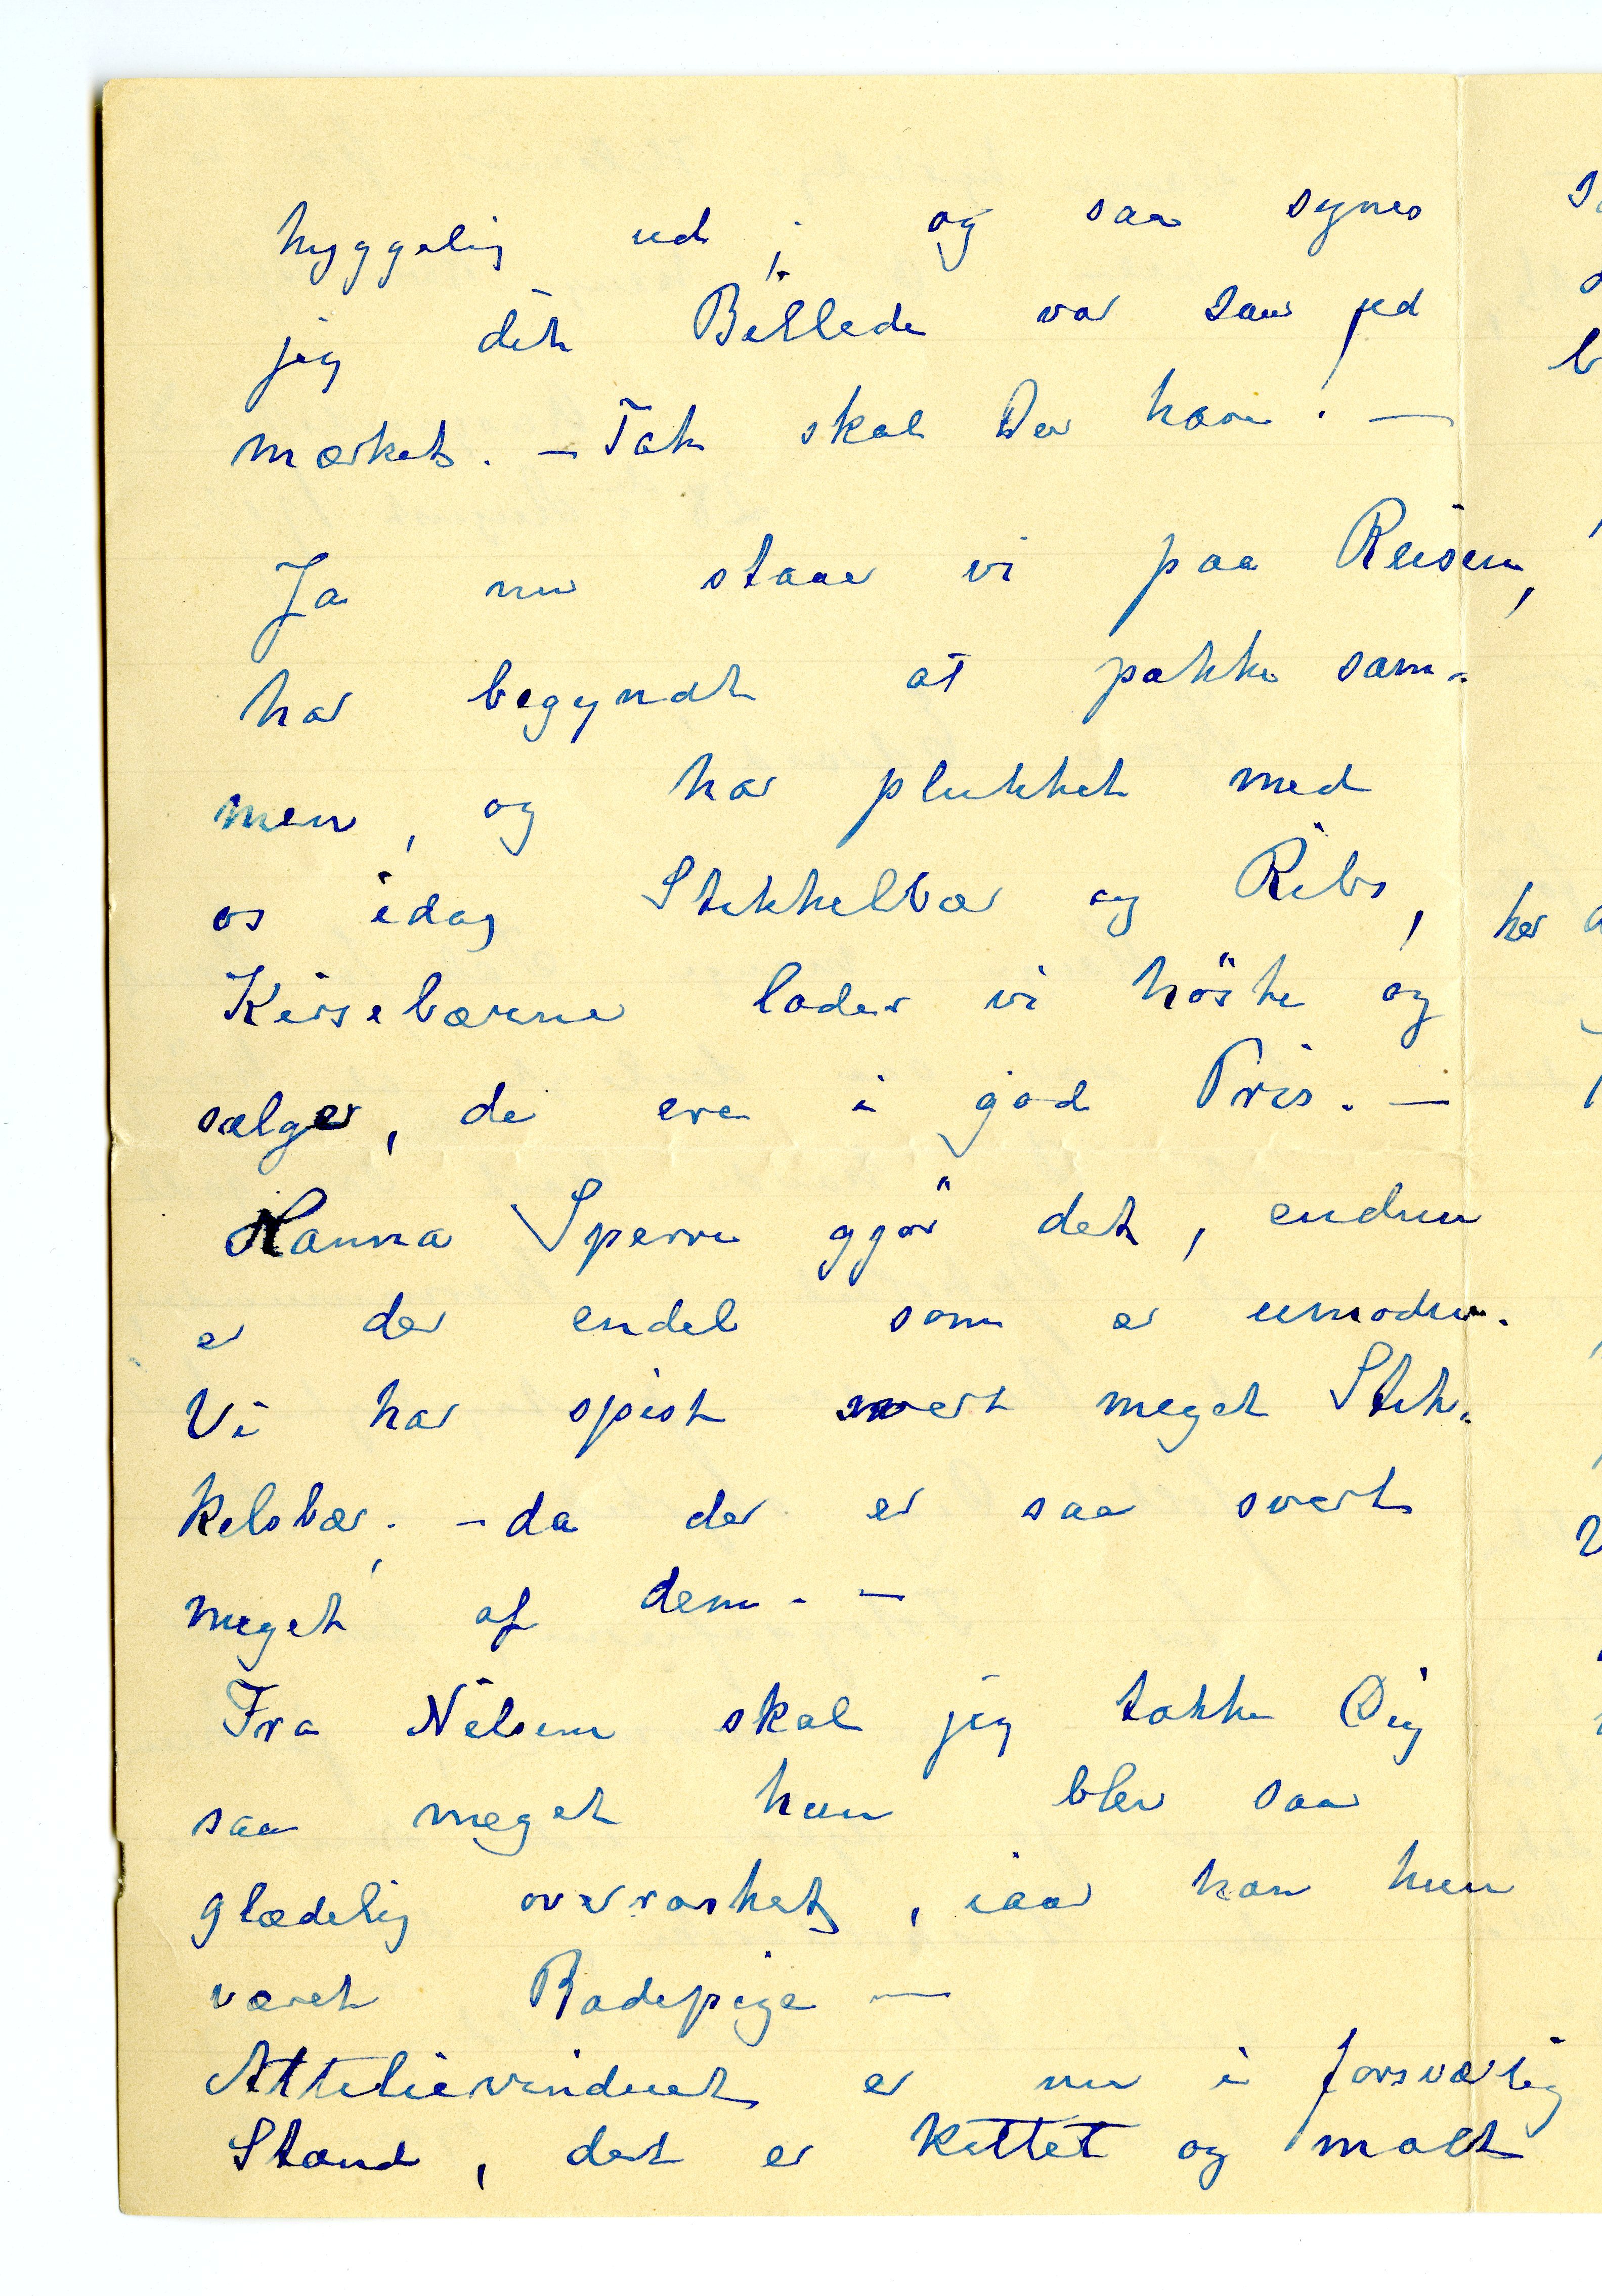 hyggelig ud; og saa synes
jeg det Billede var saa ud
mærket. – Tak skal Du have! –
Ja nu staar vi paa Reisen,
har begyndt at pakke sam-
men, og har plukket med
os idag Stikkelbær og Ribs,
Kirsebærene lader vi höste og
sælger, de ere i god Pris. –
Hanna Sperre gjör det, endnu
er der endel som er umodne.
Vi har spist svært meget Stik-
kelsbær; – da der er saa svært
meget af dem. –
Fra Nilsen skal jeg takke Dig
saa meget hun blev saa
glædelig overrasket, iaar har hun
været Badepige –
Attelievinduet er nu i forsvarlig
Stand, det er kittet og malt